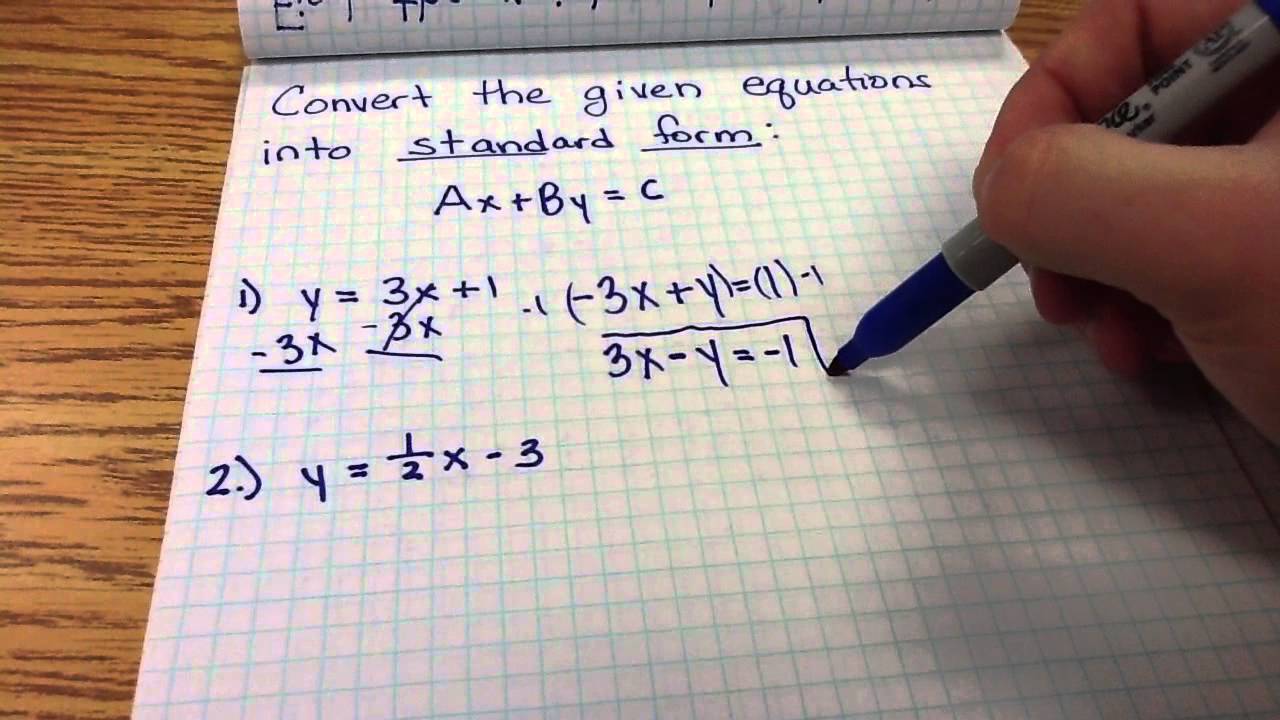 Convert the given equations
into standard form:
Ax+By=C
1) y = 3x + 1
-3x -3x
-1 (-3x + y)=(1) -1
3x - y = -1
2.) y = 1/2 x - 3
POINT